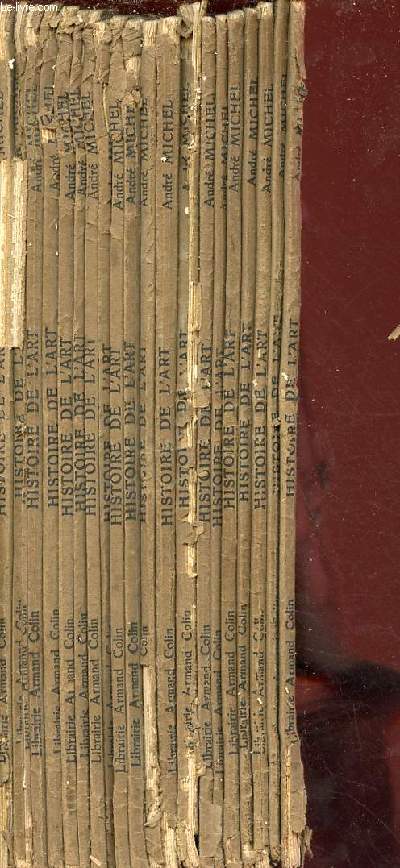 Le-livre.com
Armand Colin HISTOIRE DE L'ART
Armand Colin HISTOIRE DE L'ART
Librairie Armand Colin HISTOIRE DE L'ART André MICHEL
Librairie Armand Colin HISTOIRE DE L'ART MICHEL
Librairie Armand Colin HISTOIRE DE L'ART André MICHEL
Librairie Armand Colin HISTOIRE DE L'ART André MICHEL
Librairie Armand Colin HISTOIRE DE L'ART André MICHEL
Armand Colin HISTOIRE DE L'ART
Librairie Armand Colin HISTOIRE DE L'ART André MICHEL
Librairie Armand Colin HISTOIRE DE L'ART André MICHEL
Colin HISTOIRE DE L'ART André MICHEL
Librairie Armand Colin HISTOIRE DE L'ART André MICHEL
Armand Colin HISTOIRE DE L'ART André MICHEL
Librairie Armand Colin HISTOIRE DE L'ART André MICHEL
Librairie Armand Colin HISTOIRE DE L'ART André MICHEL
Librairie Armand Colin HISTOIRE DE L'ART André MICHEL
Librairie Armand Colin HISTOIRE DE L'ART André MICHEL
Librairie Armand Colin HISTOIRE DE L'ART André MICHEL
HISTOIRE DE L'ART André MICHEL
Librairie Armand Colin HISTOIRE DE L'ART André MICHEL